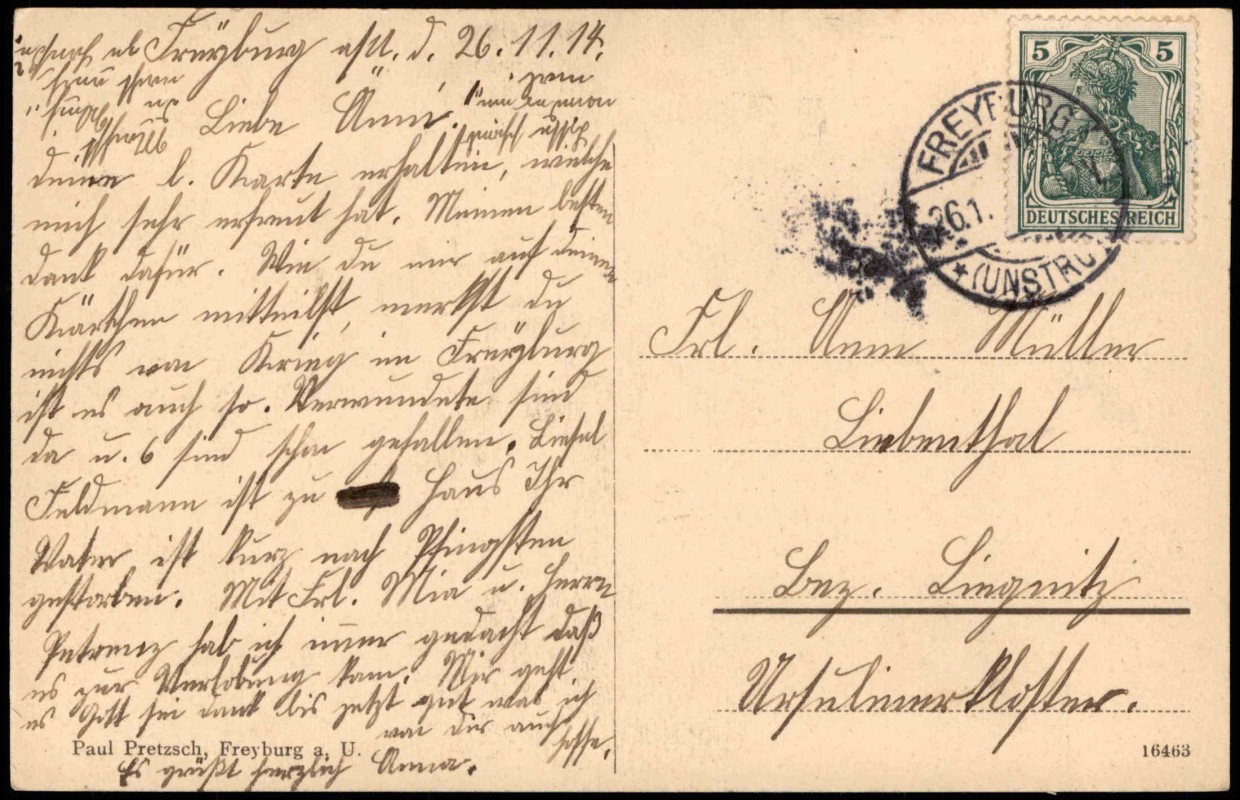 Freyburg a/U. d. 26.11.14.
Liebe Änni.
deine l. Karte erhalten, welche
mich sehr erfreut hat. Meinen besten
dank dafür. Wie du mir auf deinem
Kärtchen mitteilst, merkst du
nichts von Krieg im Freyburg
ist es auch so. Verwundete sind
da u. 6 sind schon gefallen. Liesel
Feldmann ist zu Haus Ihr
Vater ist kurz nach Pfingsten
gestorben. Mit Frl. Mia u. Herrn
hab ich immer gedacht daß
es zur Verlobung kam. Mir geht
es Gott sei dank bis jetzt gut was ich
von dir auch hoffe.
Es grüßt herzlich Anna.
Paul Pretzsch, Freyburg a. U.
5 5
DEUTSCHES REICH
FREYBURG
26.1.
* (UNSTRU
Frl. Änni Müller
Liebenthal
Bez. Liegnitz
Ursulinerkloster.
16463